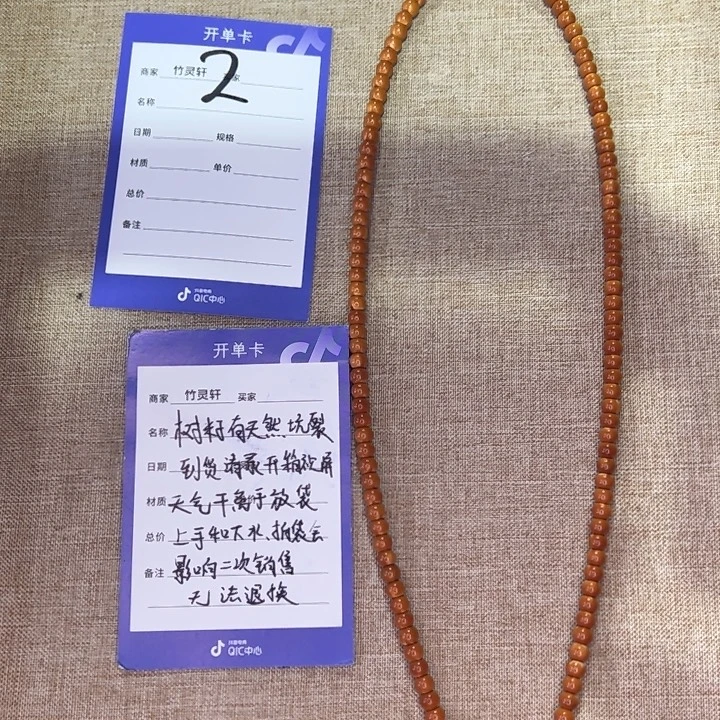 开单卡
商家 竹灵轩 家
2
名称
日期 规格
材质 单价
总价
备注
抖音电商
QIC中心
开单卡
商家 竹灵轩 买家
名称 树籽有天然坑裂
日期 到货请录开箱视屏
材质 天气干离手放袋
总价 上手和下水、拍袋会
备注 影响二次销售
无法退换
抖音电商
QIC中心